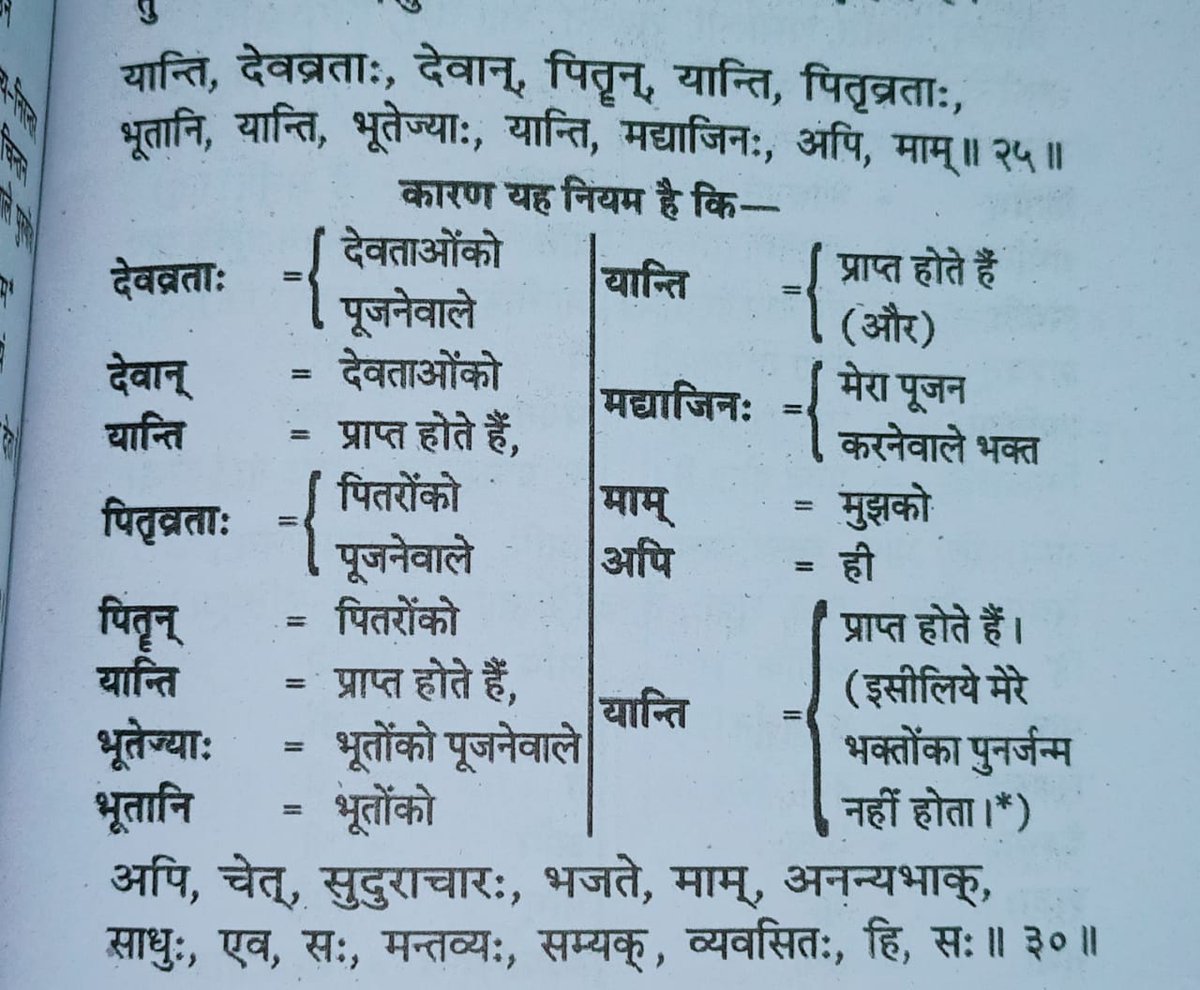 यान्ति, देवव्रताः, देवान्, पितॄन्, यान्ति, पितृव्रताः,
भूतानि, यान्ति, भूतेज्याः, यान्ति, मद्याजिनः, अपि, माम्॥ २५॥
कारण यह नियम है कि—
देवव्रताः = देवताओंको
पूजनेवाले
देवान् = देवताओंको
यान्ति = प्राप्त होते हैं,
पितृव्रताः = पितरोंको
पूजनेवाले
पितॄन् = पितरोंको
यान्ति = प्राप्त होते हैं,
भूतेज्याः = भूतोंको पूजनेवाले
भूतानि = भूतोंको
यान्ति = प्राप्त होते हैं
(और)
मद्याजिनः = मेरा पूजन
करनेवाले भक्त
माम् = मुझको
अपि = ही
यान्ति = प्राप्त होते हैं।
(इसीलिये मेरे
भक्तोंका पुनर्जन्म
नहीं होता।*)
अपि, चेत्, सुदुराचारः, भजते, माम्, अनन्यभाक्,
साधुः, एव, सः, मन्तव्यः, सम्यक्, व्यवसितः, हि, सः॥ ३०॥